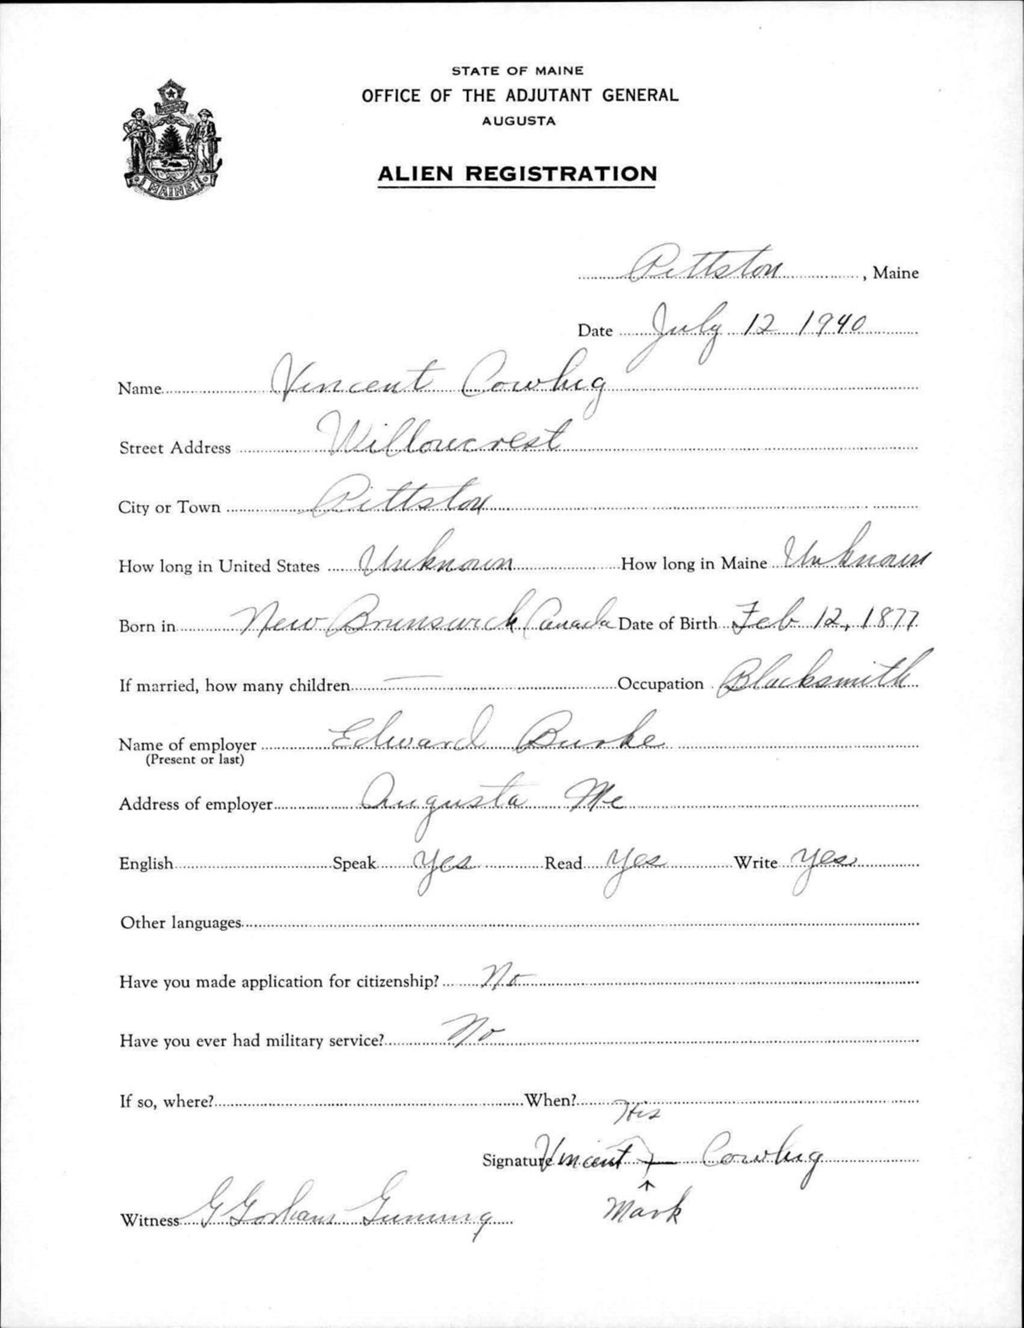 STATE OF MAINE
OFFICE OF THE ADJUTANT GENERAL
AUGUSTA
ALIEN REGISTRATION
MAINE
Pittston, Maine
Date July 12 1940
Name Vincent Cowhig
Street Address Willowcrest
City or Town Pittston
How long in United States Unknown How long in Maine Unknown
Born in New Brunswick Canada Date of Birth Feb 12, 1877
If married, how many children — Occupation Blacksmith
Name of employer Edward Burke
(Present or last)
Address of employer Augusta Me
English Speak Yes Read Yes Write Yes
Other languages
Have you made application for citizenship? No
Have you ever had military service? No
If so, where? When?
His
Signature Vincent + Cowhig
Mark
Witness G Gorham